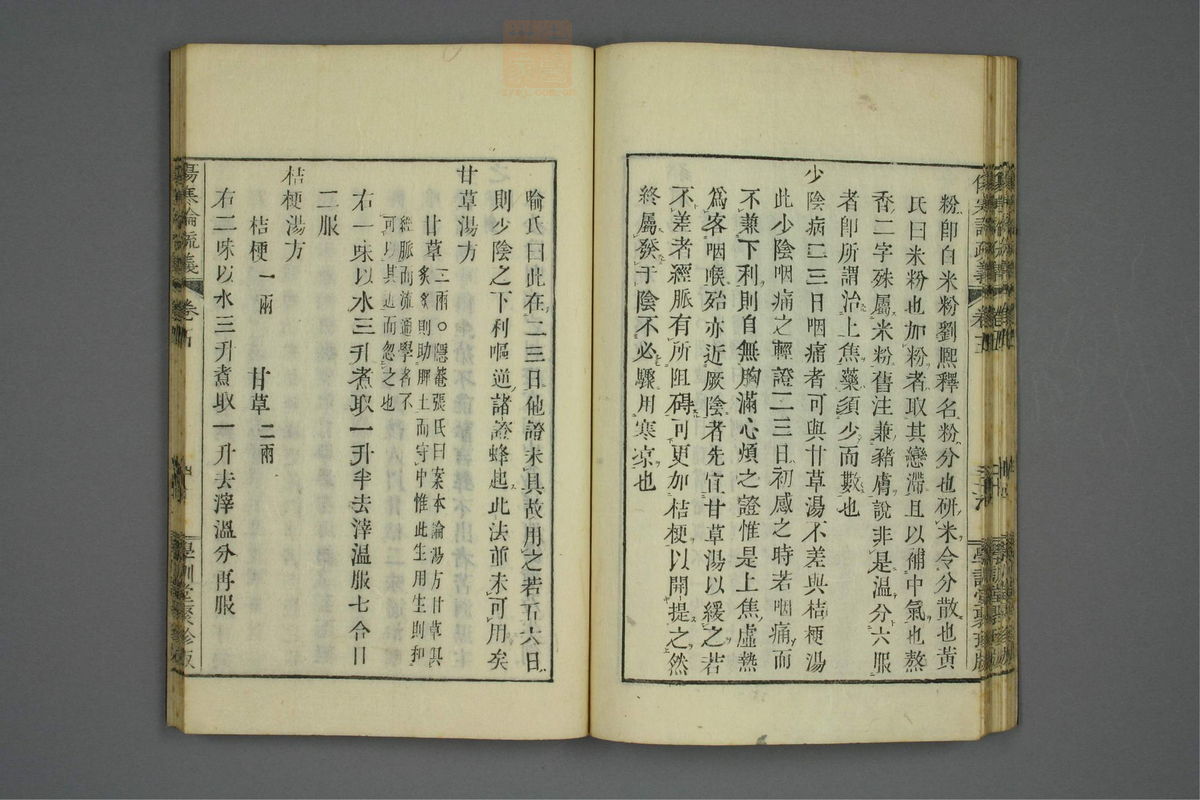 粉卽白米粉劉熙釋名粉分也研米令分散也黃
氏曰米粉也加粉者取其戀滯且以補中氣也熬
香二字殊屬米粉舊注兼豬膚說非是溫分六服
者卽所謂治上焦藥須少而數也
少陰病二三日咽痛者可與甘草湯不差與桔梗湯
此少陰咽痛之輕證二三日初感之時若咽痛而
不兼下利則自無胸滿心煩之證惟是上焦虛熱
爲客咽喉殆亦近厥陰者先宜甘草湯以緩之若
不差者經脈有所阻碍可更加桔梗以開提之然
終屬發于陰不必驟用寒凉也
喻氏曰此在二三日他證未具故用之若五六日
則少陰之下利嘔逆諸證蜂起此法並未可用矣
甘草湯方
甘草二兩○隱菴張氏曰案本論湯方甘草俱
炙炙則助脾土而守中惟此生用生則和
經脈而流通學者不
可以其近而忽之也
右一味以水三升煮取一升半去滓溫服七合日
二服
桔梗湯方
桔梗一兩 甘草二兩
右二味以水三升煮取一升去滓溫分再服
傷寒論疏義
卷
學訓堂聚珍版
傷寒論疏義
卷五
學訓堂聚珍版